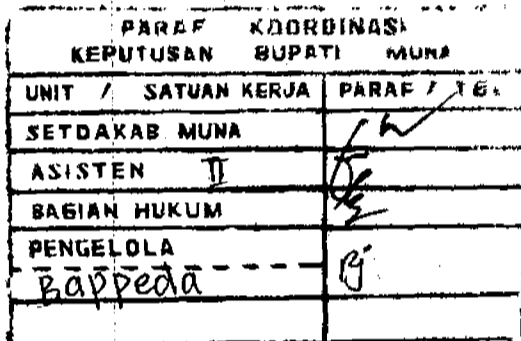 PARAF KOORDINASI
KEPUTUSAN BUPATI MUNA
UNIT / SATUAN KERJA PARAF / TGL
SETDAKAB MUNA
ASISTEN II
BAGIAN HUKUM
PENGELOLA
Bappeda